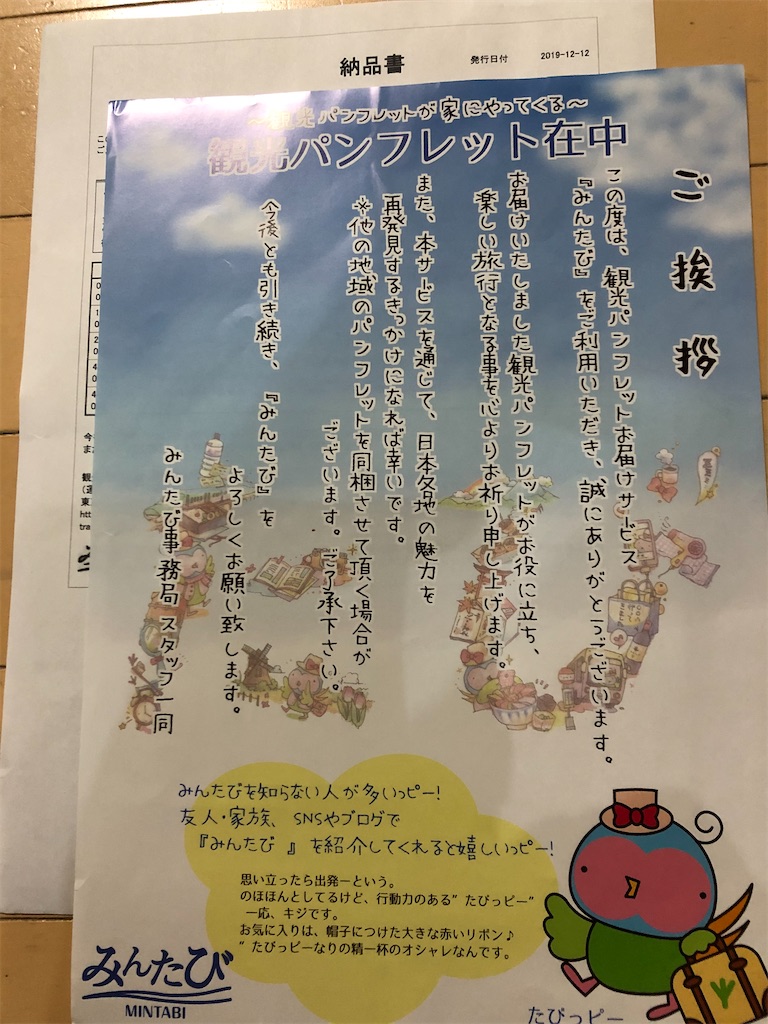 納品書
発行日付 2019-12-12
～観光パンフレットが家にやってくる～
観光パンフレット在中
ご挨拶
この度は、観光パンフレットお届けサービス
『みんたび』をご利用いただき、誠にありがとうございます。
お届けいたしました観光パンフレットがお役に立ち、
楽しい旅行となる事を心よりお祈り申し上げます。
また、本サービスを通じて、日本各地の魅力を
再発見するきっかけになれば幸いです。
※他の地域のパンフレットを同梱させて頂く場合が
ございます。ご了承下さい。
今後とも引き続き、『みんたび』を
よろしくお願い致します。
みんたび事務局 スタッフ一同
みんたびを知らない人が多いっピー!
友人・家族、SNSやブログで
『みんたび 』を紹介してくれると嬉しいっピー!
思い立ったら出発ーという。
のほほんとしてるけど、行動力のある”たびっピー”
一応、キジです。
お気に入りは、帽子につけた大きな赤いリボン♪
”たびっピーなりの精一杯のオシャレなんです。
みんたび
MINTABI
たびっピー